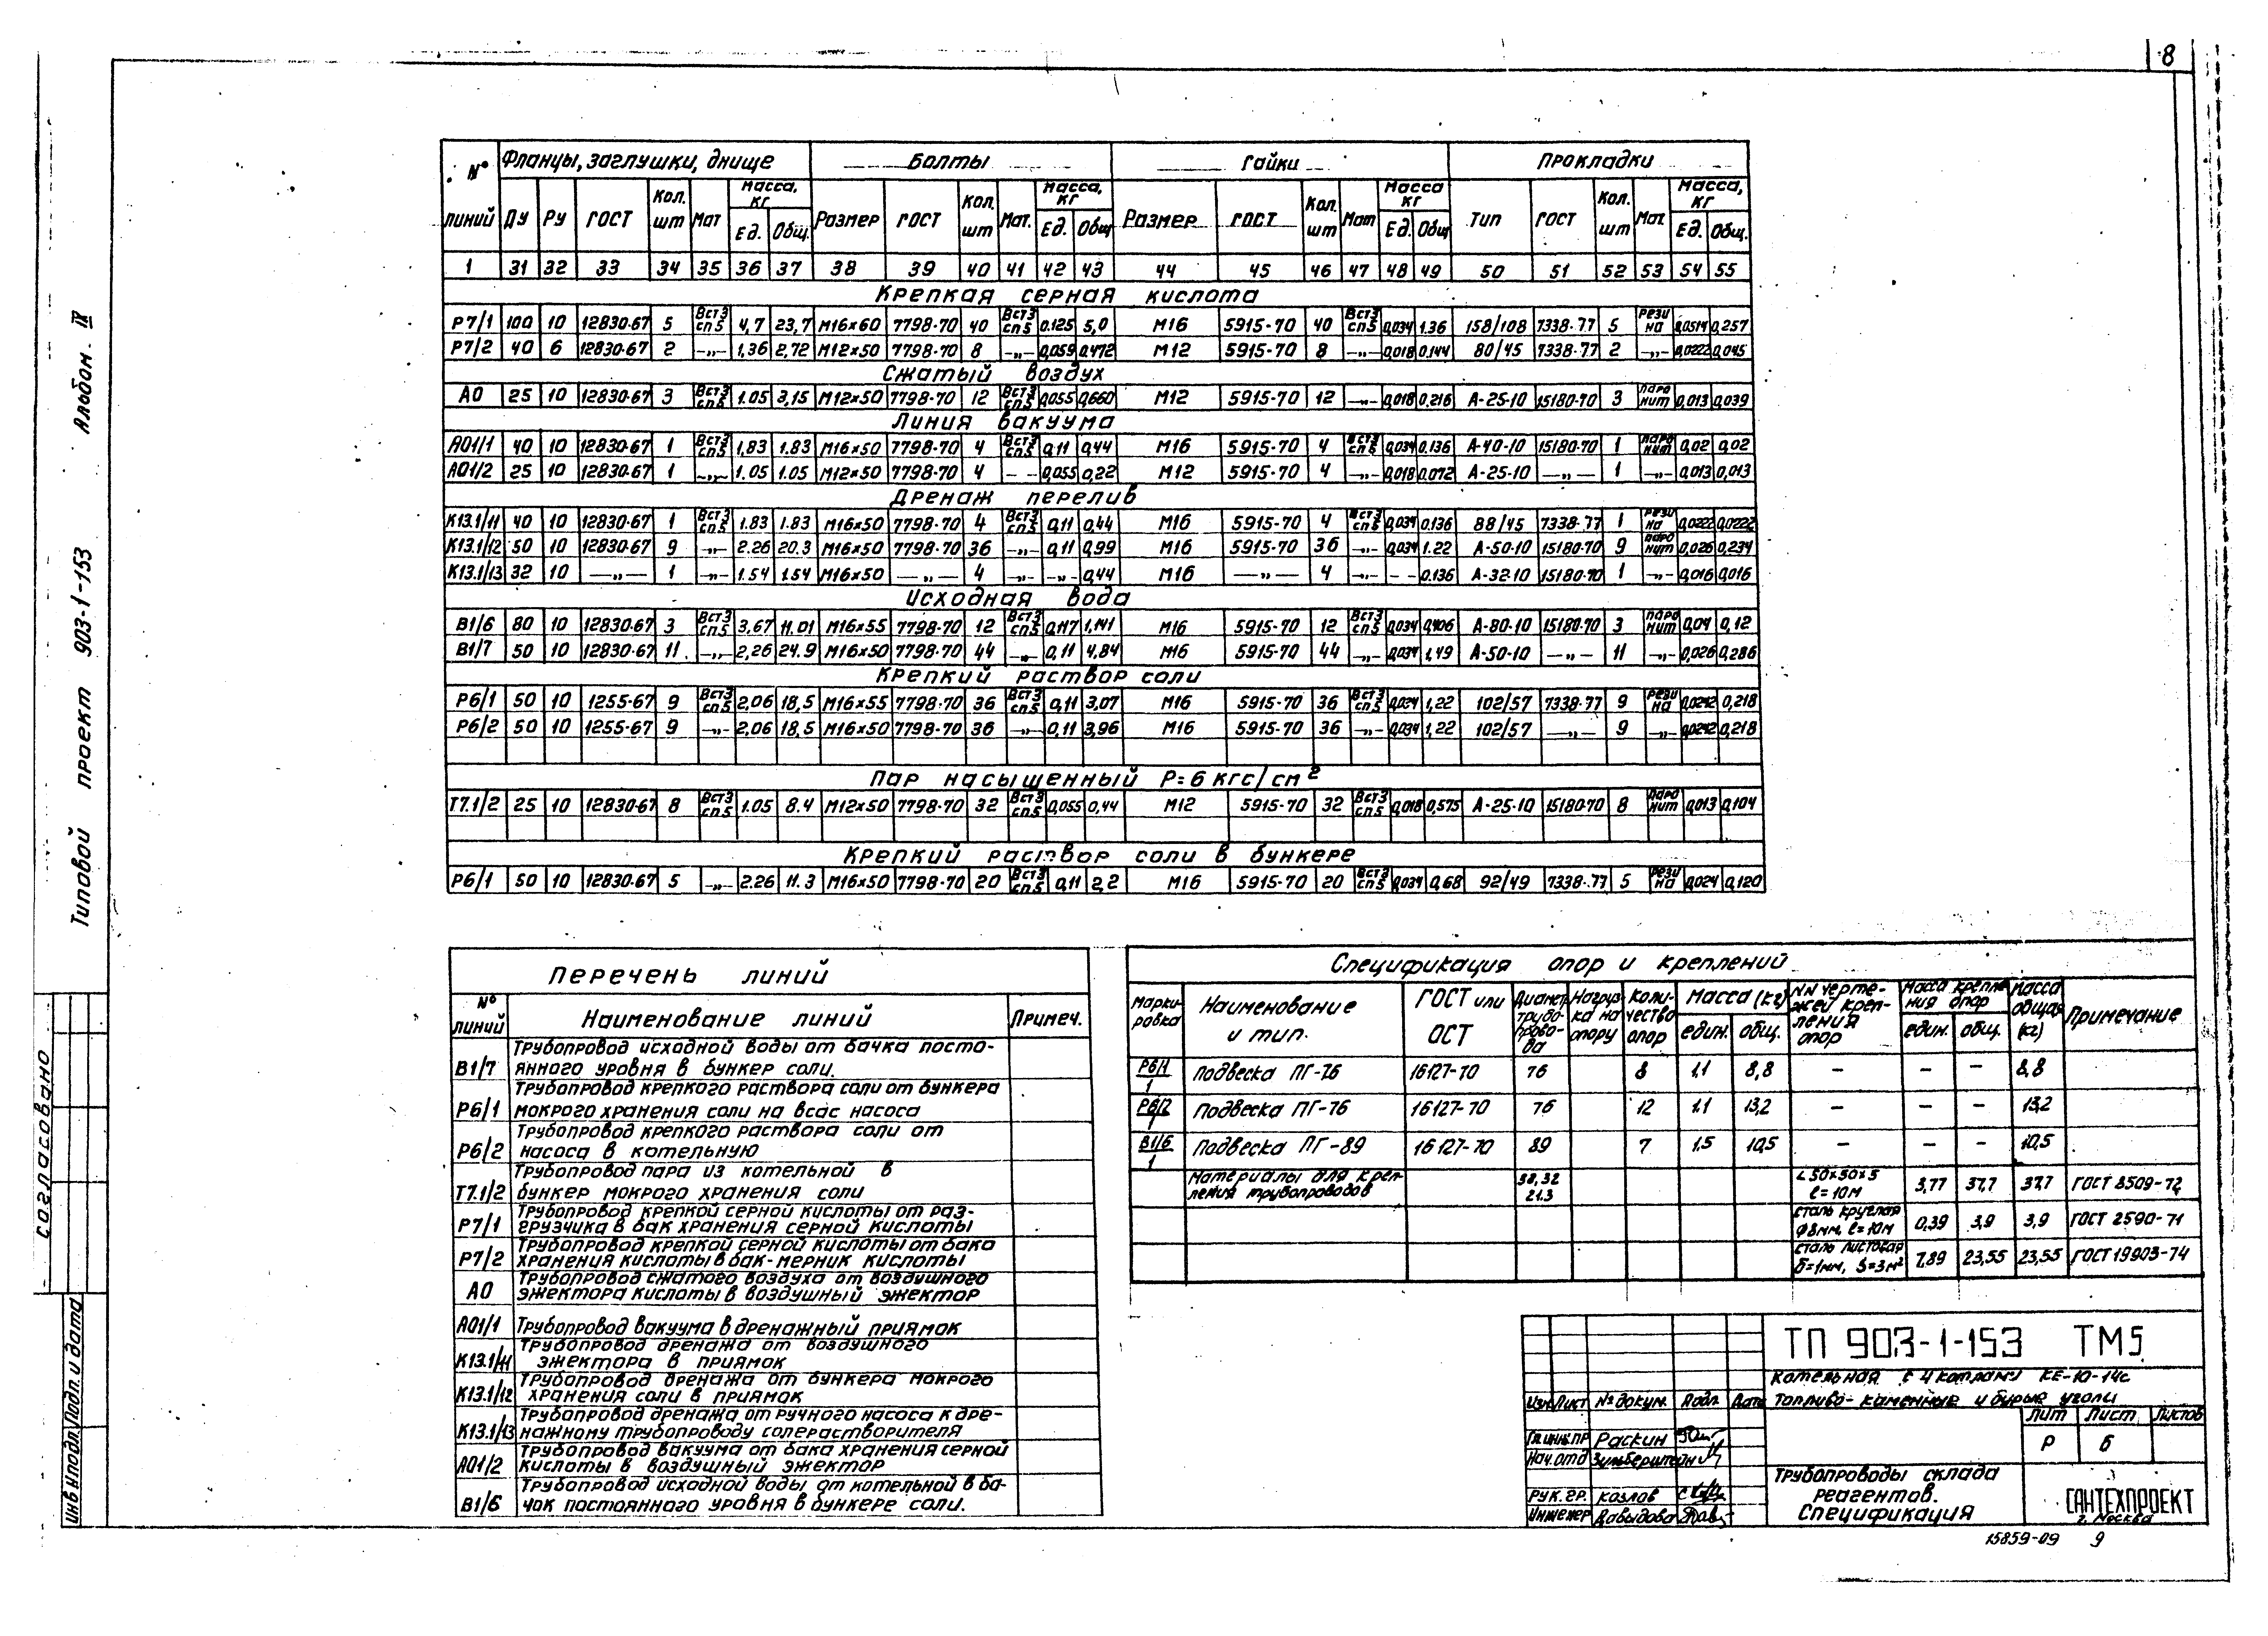 8
Типовой проект 903-1-153 Альбом. IX
Согласовано
Инв.N подл. Подп. и дата
N° линий Фланцы, заглушки, днище Болты Гайки Прокладки
Ду Ру ГОСТ Кол. шт Мат Масса, кг Ед. Общ. Размер ГОСТ Кол. шт Мат. Масса, кг Ед. Общ Размер ГОСТ Кол. шт Мат Масса кг Ед. Общ Тип ГОСТ Кол. шт Мат. Масса, кг Ед. Общ.
1 31 32 33 34 35 36 37 38 39 40 41 42 43 44 45 46 47 48 49 50 51 52 53 54 55
Крепкая серная кислота
Р7/1 100 10 12830-67 5 Вст3 сп5 4,7 23,7 М16×60 7798-70 40 Вст3 сп5 0.125 5,0 М16 5915-70 40 Вст3 сп5 0,034 1.36 158/108 7338-77 5 рези на 0,0514 0,257
Р7/2 40 6 12830-67 2 —„— 1,36 2,72 М12×50 7798-70 8 —„— 0,059 0.472 М12 5915-70 8 —„— 0,018 0.144 80/45 7338-77 2 —„— 0,0222 0,045
Сжатый воздух
А0 25 10 12830-67 3 Вст3 сп5 1.05 3,15 М12×50 7798-70 12 Вст3 сп5 0,055 0,660 М12 5915-70 12 —„— 0,018 0.216 А-25-10 15180-70 3 паро нит 0,013 0,039
Линия вакуума
А01/1 40 10 12830-67 1 Вст3 сп5 1,83 1.83 М16×50 7798-70 4 Вст3 сп5 0,11 0,44 М16 5915-70 4 Вст3 сп5 0,034 0.136 А-40-10 15180-70 1 паро нит 0,02 0,02
А01/2 25 10 12830-67 1 —„— 1.05 1.05 М12×50 7798-70 4 — — 0,055 0,22 М12 5915-70 4 —„— 0,018 0.072 А-25-10 —„— 1 —„— 0,013 0,013
Дренаж перелив
К13.1/11 40 10 12830-67 1 Вст3 сп5 1.83 1.83 М16×50 7798-70 4 Вст3 сп5 0,11 0,44 М16 5915-70 4 Вст3 сп5 0,034 0.136 88/45 7338-77 1 рези на 0,0222 0,0222
К13.1/12 50 10 12830-67 9 —„— 2.26 20.3 М16×50 7798-70 36 —„— 0,11 0,99 М16 5915-70 36 —„— 0,034 1.22 А-50-10 15180-70 9 паро нит 0,026 0,234
К13.1/13 32 10 —„— 1 —„— 1.54 1.54 М16×50 —„— 4 —„— —„— 0,44 М16 —„— 4 —„— — — 0.136 А-32-10 15180-70 1 —„— 0,016 0,016
Исходная вода
В1/6 80 10 12830-67 3 Вст3 сп5 3,67 11.01 М16×55 7798-70 12 Вст3 сп5 0,117 1,141 М16 5915-70 12 Вст3 сп5 0,034 0,406 А-80-10 15180-70 3 паро нит 0,04 0,12
В1/7 50 10 12830-67 11. —„— 2,26 24.9 М16×50 7798-70 44 —„— 0,11 4,84 М16 5915-70 44 —„— 0,034 1,49 А-50-10 —„— 11 —„— 0,026 0,286
Крепкий раствор соли
Р6/1 50 10 1255-67 9 Вст3 сп5 2,06 18,5 М16×55 7798-70 36 Вст3 сп5 0,11 3,07 М16 5915-70 36 Вст3 сп5 0,034 1,22 102/57 7338-77 9 рези на 0,0242 0,218
Р6/2 50 10 1255-67 9 —„— 2,06 18,5 М16×50 7798-70 36 —„— 0,11 3,96 М16 5915-70 36 —„— 0,034 1,22 102/57 —„— 9 —„— 0,0242 0,218
Пар насыщенный Р=6 кгс/см²
Т7.1/2 25 10 12830-67 8 Вст3 сп5 1.05 8.4 М12×50 7798-70 32 Вст3 сп5 0,055 0,44 М12 5915-70 32 Вст3 сп5 0,018 0,575 А-25-10 15180-70 8 паро нит 0,013 0,104
Крепкий раствор соли в бункере
Р6/1 50 10 12830-67 5 —„— 2.26 11.3 М16×50 7798-70 20 Вст3 сп5 0,11 2,2 М16 5915-70 20 Вст3 сп5 0,034 0,68 92/49 7338-77 5 рези на 0,024 0,120
Перечень линий
N° линий Наименование линий Примеч.
В1/7 Трубопровод исходной воды от бачка посто-
янного уровня в бункер соли.
Р6/1 Трубопровод крепкого раствора соли от бункера
мокрого хранения соли на всас насоса
Р6/2 Трубопровод крепкого раствора соли от
насоса в котельную
Т7.1/2 Трубопровод пара из котельной в
бункер мокрого хранения соли
Р7/1 Трубопровод крепкой серной кислоты от раз-
грузчика в бак хранения серной кислоты
Р7/2 Трубопровод крепкой серной кислоты от бака
хранения кислоты в бак-мерник кислоты
А0 Трубопровод сжатого воздуха от воздушного
эжектора кислоты в воздушный эжектор
А01/1 Трубопровод вакуума в дренажный приямок
К13.1/11 Трубопровод дренажа от воздушного
эжектора в приямок
К13.1/12 Трубопровод дренажа от бункера мокрого
хранения соли в приямок
К13.1/13 Трубопровод дренажа от ручного насоса к дре-
нажному трубопроводу солерастворителя
А01/2 Трубопровод вакуума от бака хранения серной
кислоты в воздушный эжектор
В1/6 Трубопровод исходной воды от котельной в ба-
чок постоянного уровня в бункере соли.
Спецификация опор и креплений
Марки-ровка Наименование и тип. ГОСТ или ОСТ Диамет. трубо-прово-да Нагруз-ка на опору Коли-чество опор Масса (кг) един. общ. NN черте-жей креп-ления опор Масса крепле-ния опор един. общ. Масса общая (кг) Примечание
Р6/1 1 Подвеска ПГ-76 16127-70 76 8 1.1 8,8 — — — 8,8
Р6/2 1 Подвеска ПГ-76 16127-70 76 12 1.1 13,2 — — — 13,2
В1/6 1 Подвеска ПГ-89 16127-70 89 7 1.5 10,5 — — — 10,5
Материалы для креп-ления трубопроводов 38,32 21.3 ∠50×50×5 ℓ=10м 3,77 37,7 37,7 ГОСТ 8509-72
сталь круглая ф8мм, ℓ=10м 0,39 3,9 3,9 ГОСТ 2590-71
сталь листовая δ=1мм, S=3м² 7,89 23,55 23,55 ГОСТ 19903-74
ТП 903-1-153 ТМ5
Котельная с 4 котлами КЕ-10-14с
Топливо-каменные и бурые угли
Изм Лист № докум. Подп. Дата
Гл.инж.пр Раскин
Нач.отд Зильберштейн
Рук.гр. Козлов
Инженер Давыдова
Лит Лист Листов
Р 6
Трубопроводы склада
реагентов.
Спецификация
САНТЕХПРОЕКТ
г. Москва
15859-09 9